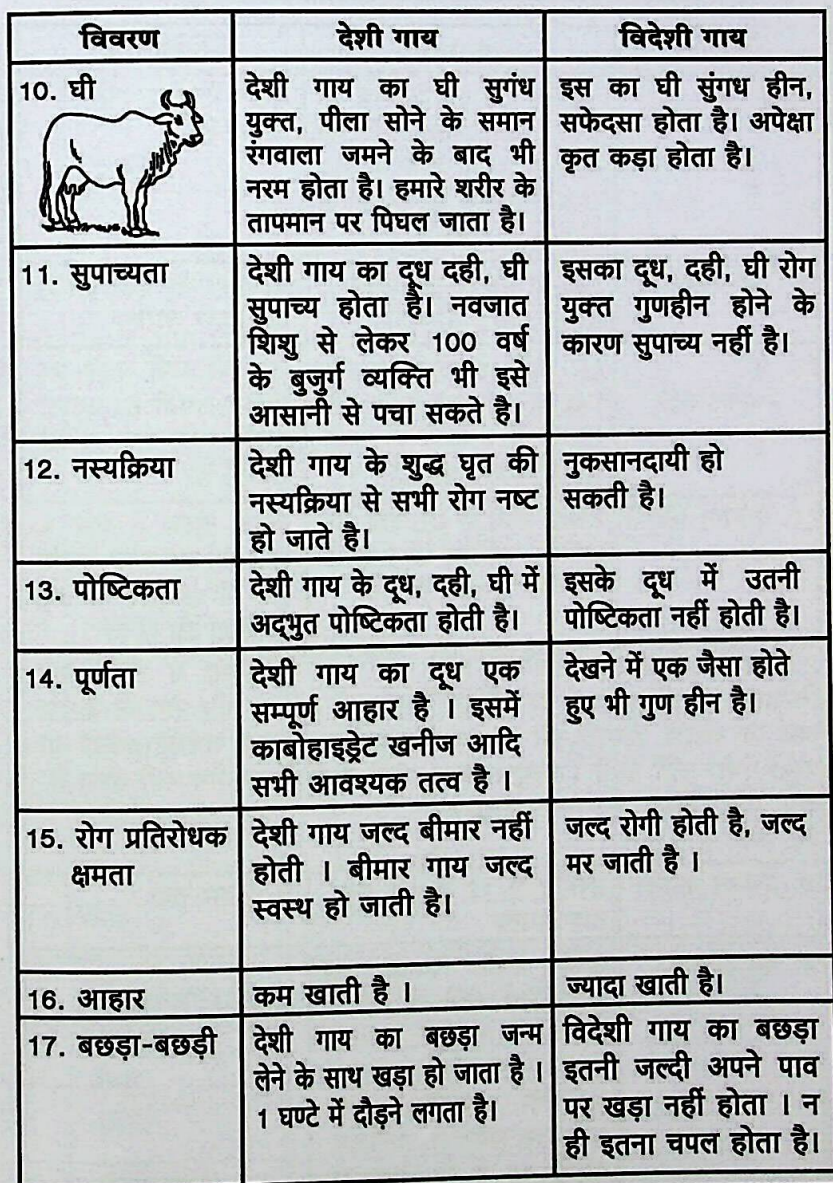 विवरण
देशी गाय
विदेशी गाय
10. घी
देशी गाय का घी सुगंध
युक्त, पीला सोने के समान
रंगवाला जमने के बाद भी
नरम होता है। हमारे शरीर के
तापमान पर पिघल जाता है।
इस का घी सुंगध हीन,
सफेदसा होता है। अपेक्षा
कृत कड़ा होता है।
11. सुपाच्यता
देशी गाय का दूध दही, घी
सुपाच्य होता है। नवजात
शिशु से लेकर 100 वर्ष
के बुजुर्ग व्यक्ति भी इसे
आसानी से पचा सकते है।
इसका दूध, दही, घी रोग
युक्त गुणहीन होने के
कारण सुपाच्य नहीं है।
12. नस्यक्रिया
देशी गाय के शुद्ध घृत की
नस्यक्रिया से सभी रोग नष्ट
हो जाते है।
नुकसानदायी हो
सकती है।
13. पोष्टिकता
देशी गाय के दूध, दही, घी में
अद्भुत पोष्टिकता होती है।
इसके दूध में उतनी
पोष्टिकता नहीं होती है।
14. पूर्णता
देशी गाय का दूध एक
सम्पूर्ण आहार है । इसमें
काबोहाइड्रेट खनीज आदि
सभी आवश्यक तत्व है ।
देखने में एक जैसा होते
हुए भी गुण हीन है।
15. रोग प्रतिरोधक
क्षमता
देशी गाय जल्द बीमार नहीं
होती । बीमार गाय जल्द
स्वस्थ हो जाती है।
जल्द रोगी होती है, जल्द
मर जाती है ।
16. आहार
कम खाती है ।
ज्यादा खाती है।
17. बछड़ा-बछड़ी
देशी गाय का बछड़ा जन्म
लेने के साथ खड़ा हो जाता है ।
1 घण्टे में दौड़ने लगता है।
विदेशी गाय का बछड़ा
इतनी जल्दी अपने पाव
पर खड़ा नहीं होता । न
ही इतना चपल होता है।